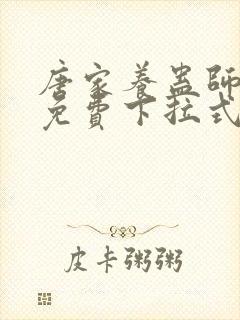 唐家養蠱師
免費下拉式
皮卡粥粥